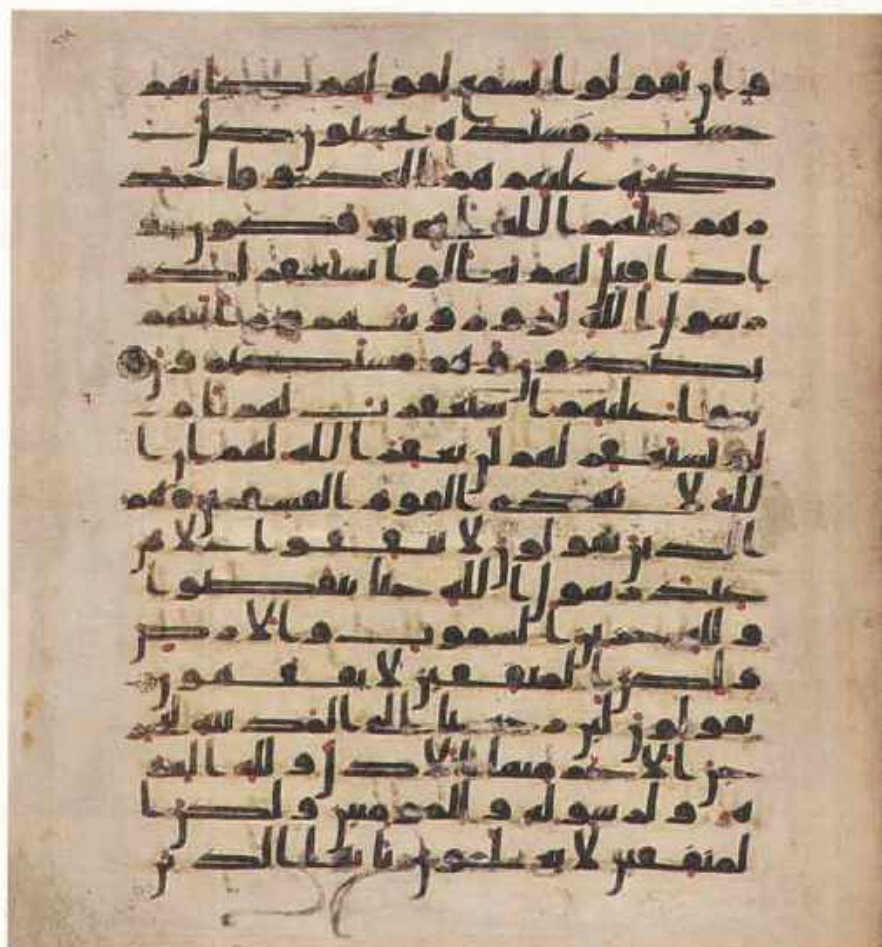 و ان يقولوا تسمع لقولهم كانهم
خشب مسندة يحسبون كل
صيحة عليهم هم العدو فاحذ
رهم قتلهم الله انى يوفكون و
اذا قيل لهم تعالوا يستغفر لكم
رسول الله لووا روسهم ورايتهم
يصدون وهم مستكبرون
سوا عليهم استغفرت لهم ام
لم تستغفر لهم لن يغفر الله لهم ان ا
لله لا يهدي القوم الفسقين هم
الذين يقولون لا تنفقوا على من
عند رسول الله حتى ينفضوا
ولله خزين السموت والارض
ولكن المنفقين لا يفقهون
يقولون لين رجعنا الى المدينة ليخر
جن الاعز منها الاذل ولله العز
ة ولرسوله وللمومنين ولكن ا
لمنفقين لا يعلمون يايها الذين